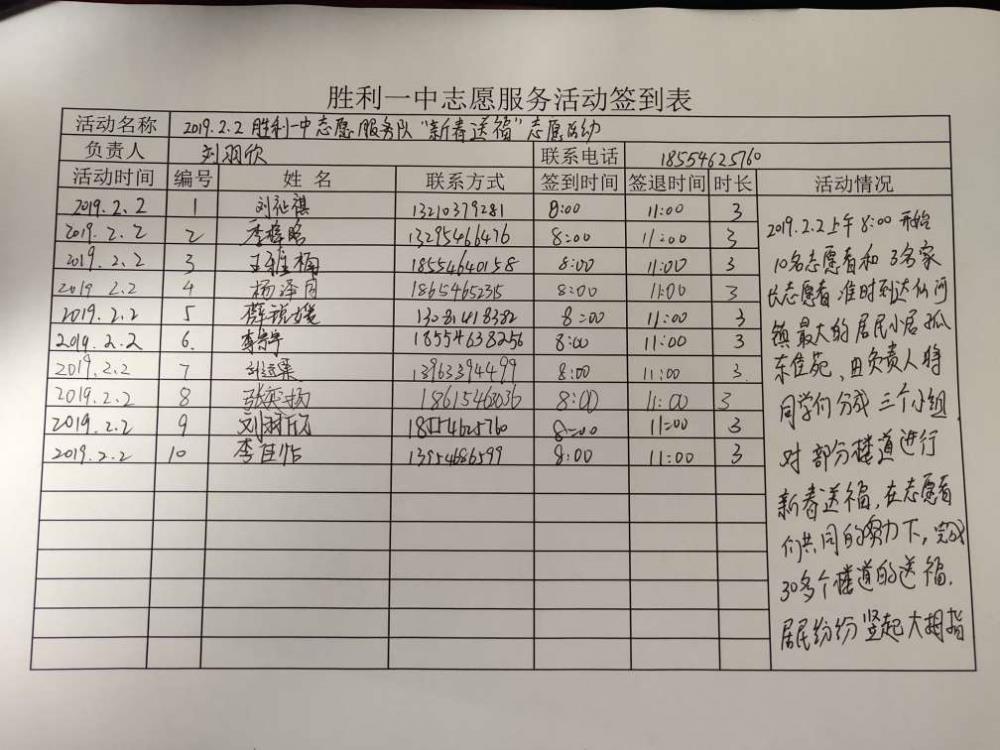 胜利一中志愿服务活动签到表
活动名称 2019.2.2 胜利一中志愿服务队“新春送福”志愿活动
负责人 刘羽欣 联系电话 18554625760
活动时间 编号 姓名 联系方式 签到时间 签退时间 时长 活动情况
2019.2.2 1 刘祉祺 13210379281 8:00 11:00 3
2019.2.2 2 13295466476 8:00 11:00 3
2019.2.2 3 18554640158 8:00 11:00 3
2019 2.2 4 杨泽同 18654652315 8:00 11:00 3
2019.2.2 5 13081418382 8:00 11:00 3
2019.2.2 6. 18554638256 8:00 11:00 3
2019.2.2 7 13963394499 8:00 11:00 3
2019.2.2 8 18615468036 8:00 11:00 3
2019.2.2 9 刘羽欣 18554625760 8:00 11:00 3
2019.2.2 10 李佳怡 13954686599 8:00 11:00 3
2019.2.2上午8:00开始
10名志愿者和3名家
长志愿者准时到达仙河
镇最大的居民小居孤
东佳苑,由负责人将
同学们分成三个小组,
对部分楼道进行
新春送福,在志愿者
们共同的努力下,完成
30多个楼道的送福.
居民纷纷竖起大拇指